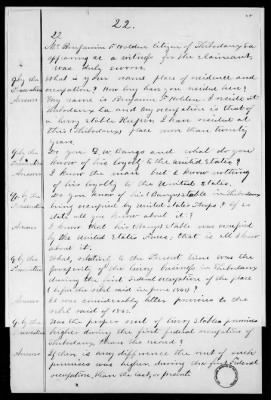 22.
22
Mr Benjamin F Holden Citizen of Thibodaux La
appearing as a witness for the claimant,
was duly sworn.
Q by the What is your name place of residence and
occupation? How long have you resided here?
Answer My name is Benjamin F Holden I reside at
Thibodaux La and my occupation is that of
a livery stable Keeper I have resided at
this Thibodaux place more than twenty
years.
Q by the Do you and what do you
know of his loyalty to the United States?
Answer I know the man but I know nothing
of his loyalty to the United States.
Q by the Do you know of his stable in Thibodaux
being occupied by United States Troops? If so
state all you know about it?
Answer I know that his stable was occupied
by the United States Army, that is all I know
about it.
Q by the What, relative to the Present time was the
prosperity of the livery business in Thibodaux
during the first federal occupation of the place
Answer It was considerably better previous to the
rebel raid of 1863.
Q by the Was the proper rent of livery stable premises
higher during the first federal occupation of
Thibodaux than the second?
Answer If there is any difference the rent of such
premises was higher during the first Federal
occupation, than the last, or present.